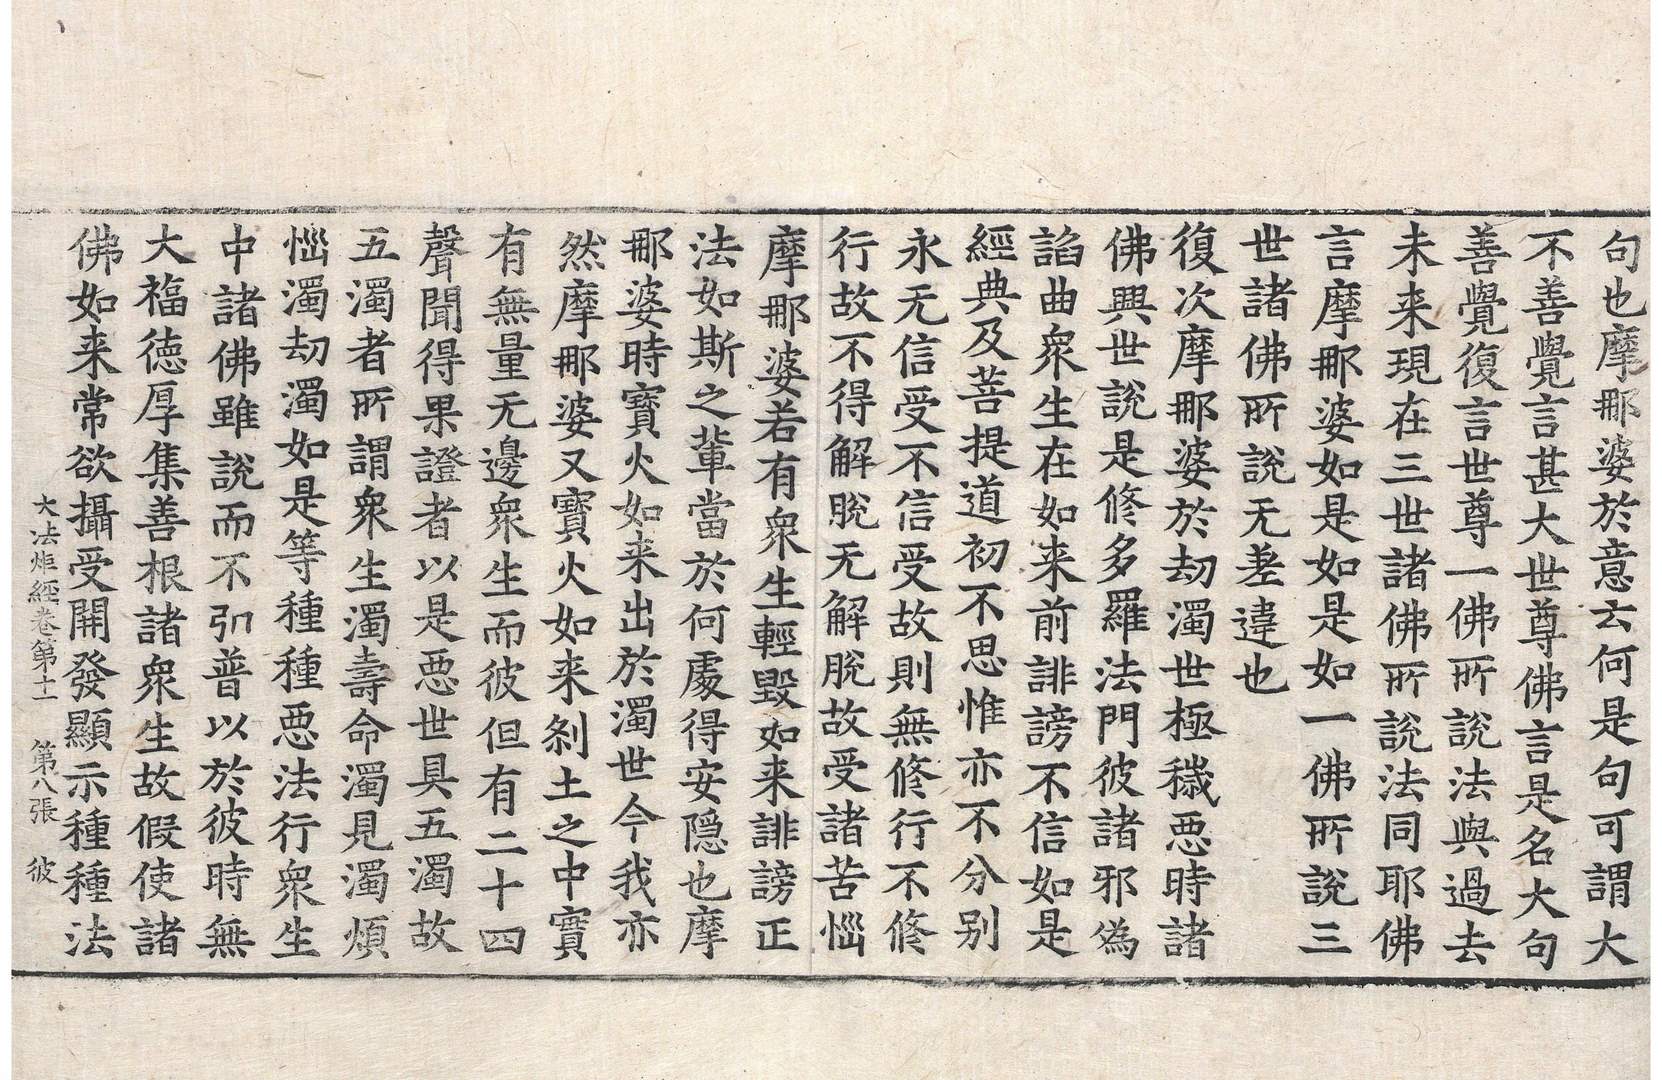 句也摩那婆於意云何是句可謂大
不善覺言甚大世尊佛言是名大句
善覺復言世尊一佛所說法與過去
未来現在三世諸佛所說法同耶佛
言摩那婆如是如是如一佛所說三
世諸佛所說无差違也
復次摩那婆於劫濁世極穢惡時諸
佛興世說是修多羅法門彼諸邪為
諂曲衆生在如来前誹謗不信如是
經典及菩提道初不思惟亦不分别
永无信受不信受故則無修行不修
行故不得解脫无解脫故受諸苦惱
摩那婆若有衆生輕毀如来誹謗正
法如斯之輩當於何處得安隱也摩
那婆時寶火如来出於濁世今我亦
然摩那婆又寶火如来剎土之中實
有無量无邊衆生而彼但有二十四
聲聞得果證者以是惡世具五濁故
五濁者所謂衆生濁壽命濁見濁煩
惱濁劫濁如是等種種惡法行衆生
中諸佛雖說而不引普以於彼時無
大福徳厚集善根諸衆生故假使諸
佛如来常欲攝受開發顯示種種法
大法炬經卷第十一 第八張 彼